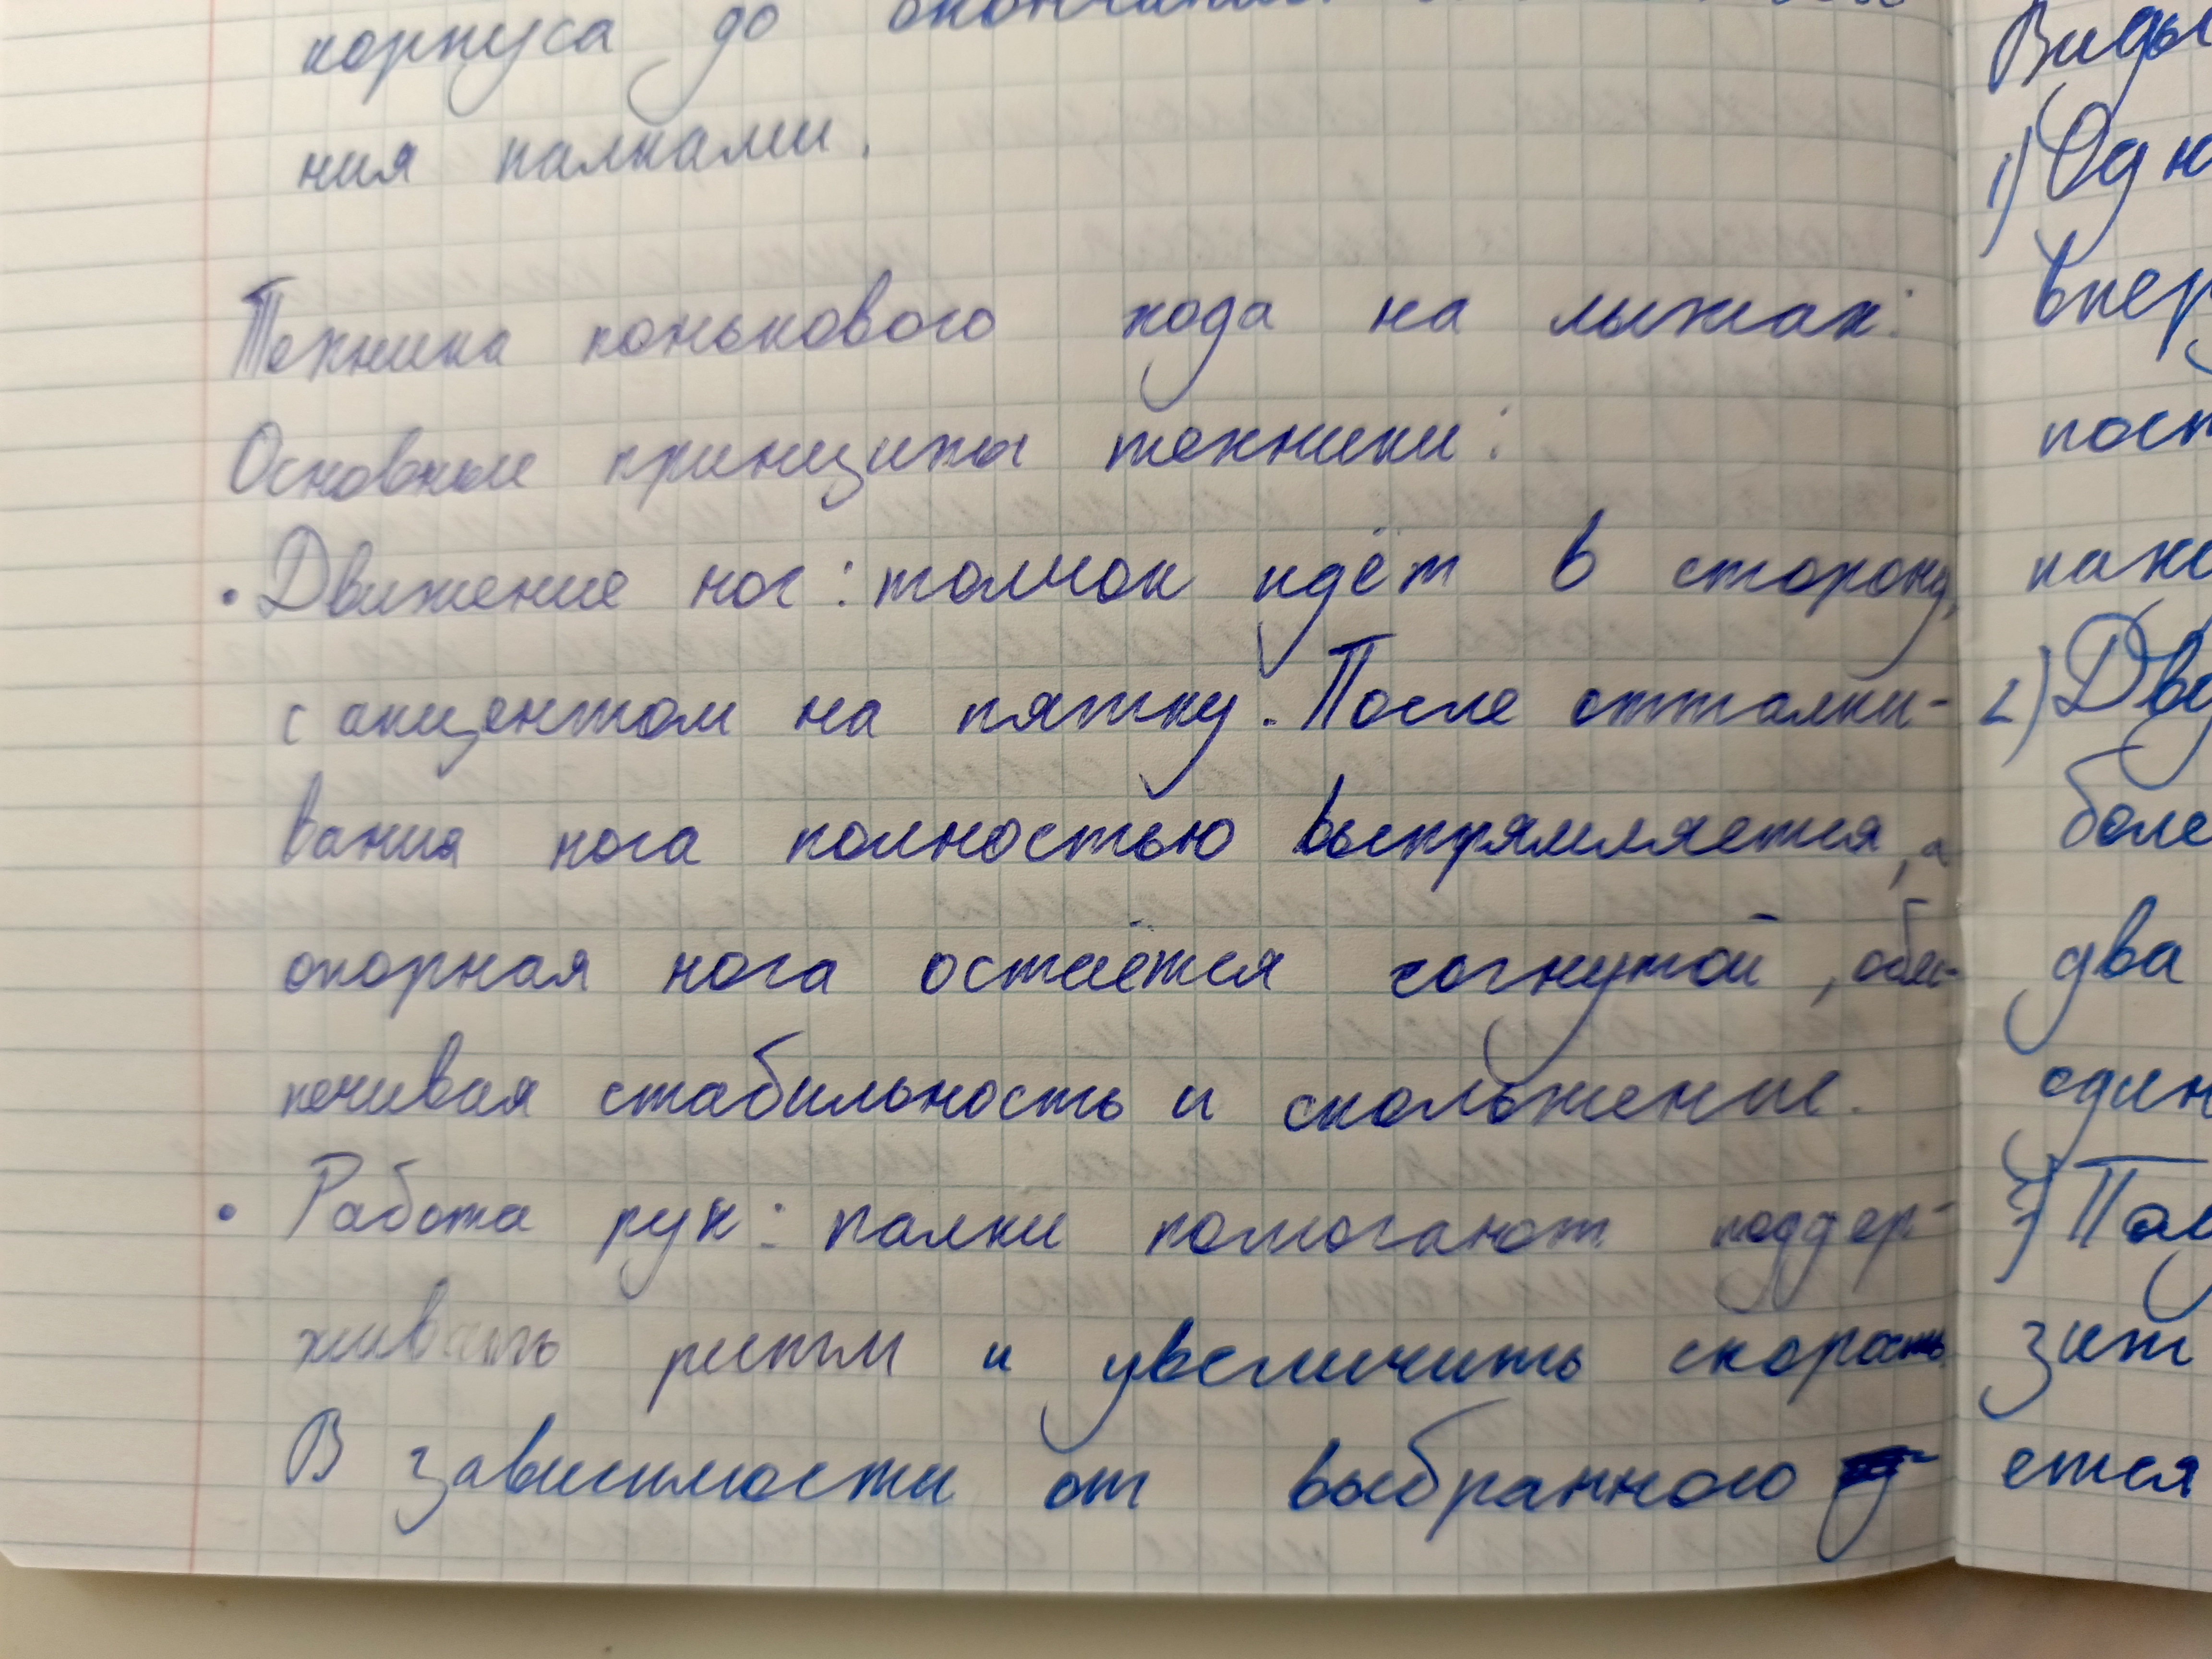 корпуса до
ния палками.
Техника конькового хода на лыжах:
Основные принципы техники:
• Движение ног: толчок идёт в сторону,
с акцентом на пятку. После отталки-
вания нога полностью выпрямляется, а
опорная нога остаётся согнутой, обес-
печивая стабильность и скольжение.
• Работа рук: палки помогают поддер-
живать ритм и увеличить скорость.
В зависимости от выбранного
Виды
1) Одн
впер
пост
2) Дву
боле
два
один
3) Пол
зит
ется